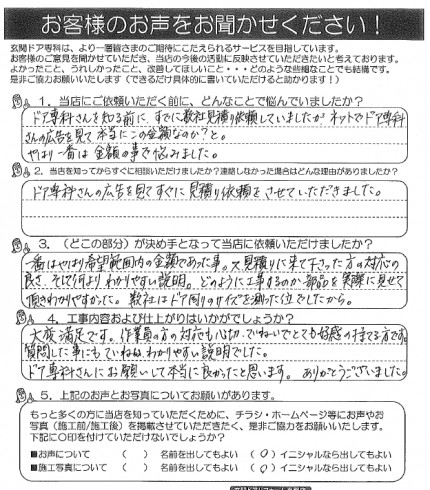 お客様のお声をお聞かせください！
玄関ドア専科は、より一層皆さまのご期待にこたえられるサービスを目指しています。
お客様のご意見を聞かせていただき、当店の今後の活動に反映させていただきたいと考えております。
よかったこと、うれしかったこと、改善してほしいこと・・・どのような些細なことでも結構です。
是非ご協力お願いいたします（できるだけ具体的に書いていただけると助かります！）
1．当店にご依頼いただく前に、どんなことで悩んでいましたか？
ドア専科さんを知る前に、すでに数社見積り依頼していましたがネットでドア専科
さんの広告を見て本当にこの金額なのか？と。
やはり一番は金額の事で悩みました。
2．当店を知ってからすぐに相談いただけましたか？連絡しなかった場合はどんな理由がありましたか？
ドア専科さんの広告を見てすぐに見積り依頼をさせていただきました。
3．（どこの部分）が決め手となって当店に依頼いただけましたか？
一番はやはり希望範囲内の金額であった事。又見積りに来て下さった方の対応の
良さ、そして何よりわかりやすい説明。どのように工事するのか部品を実際に見せて
頂きわかりやすかった。数社はドア回りのサイズを測った位でしたから。
4．工事内容および仕上がりはいかがでしょうか？
大変満足です。作業員の方の対応も親切、ていねいでとても好感の持てる方です。
質問した事にもていねいなわかりやすい説明でした。
ドア専科さんにお願いして本当に良かったと思います。ありがとうございました。
5．上記のお声とお写真についてお願いがあります。
もっと多くの方に当店を知っていただくために、チラシ・ホームページ等にお声やお
写真（施工前/施工後）を掲載させていただきたく、是非ご協力をお願いいたします。
下記に〇印を付けていただけないでしょうか？
■お声について （ ） 名前を出してもよい （〇）イニシャルなら出してもよい
■施工写真について （ ） 名前を出してもよい （〇）イニシャルなら出してもよい